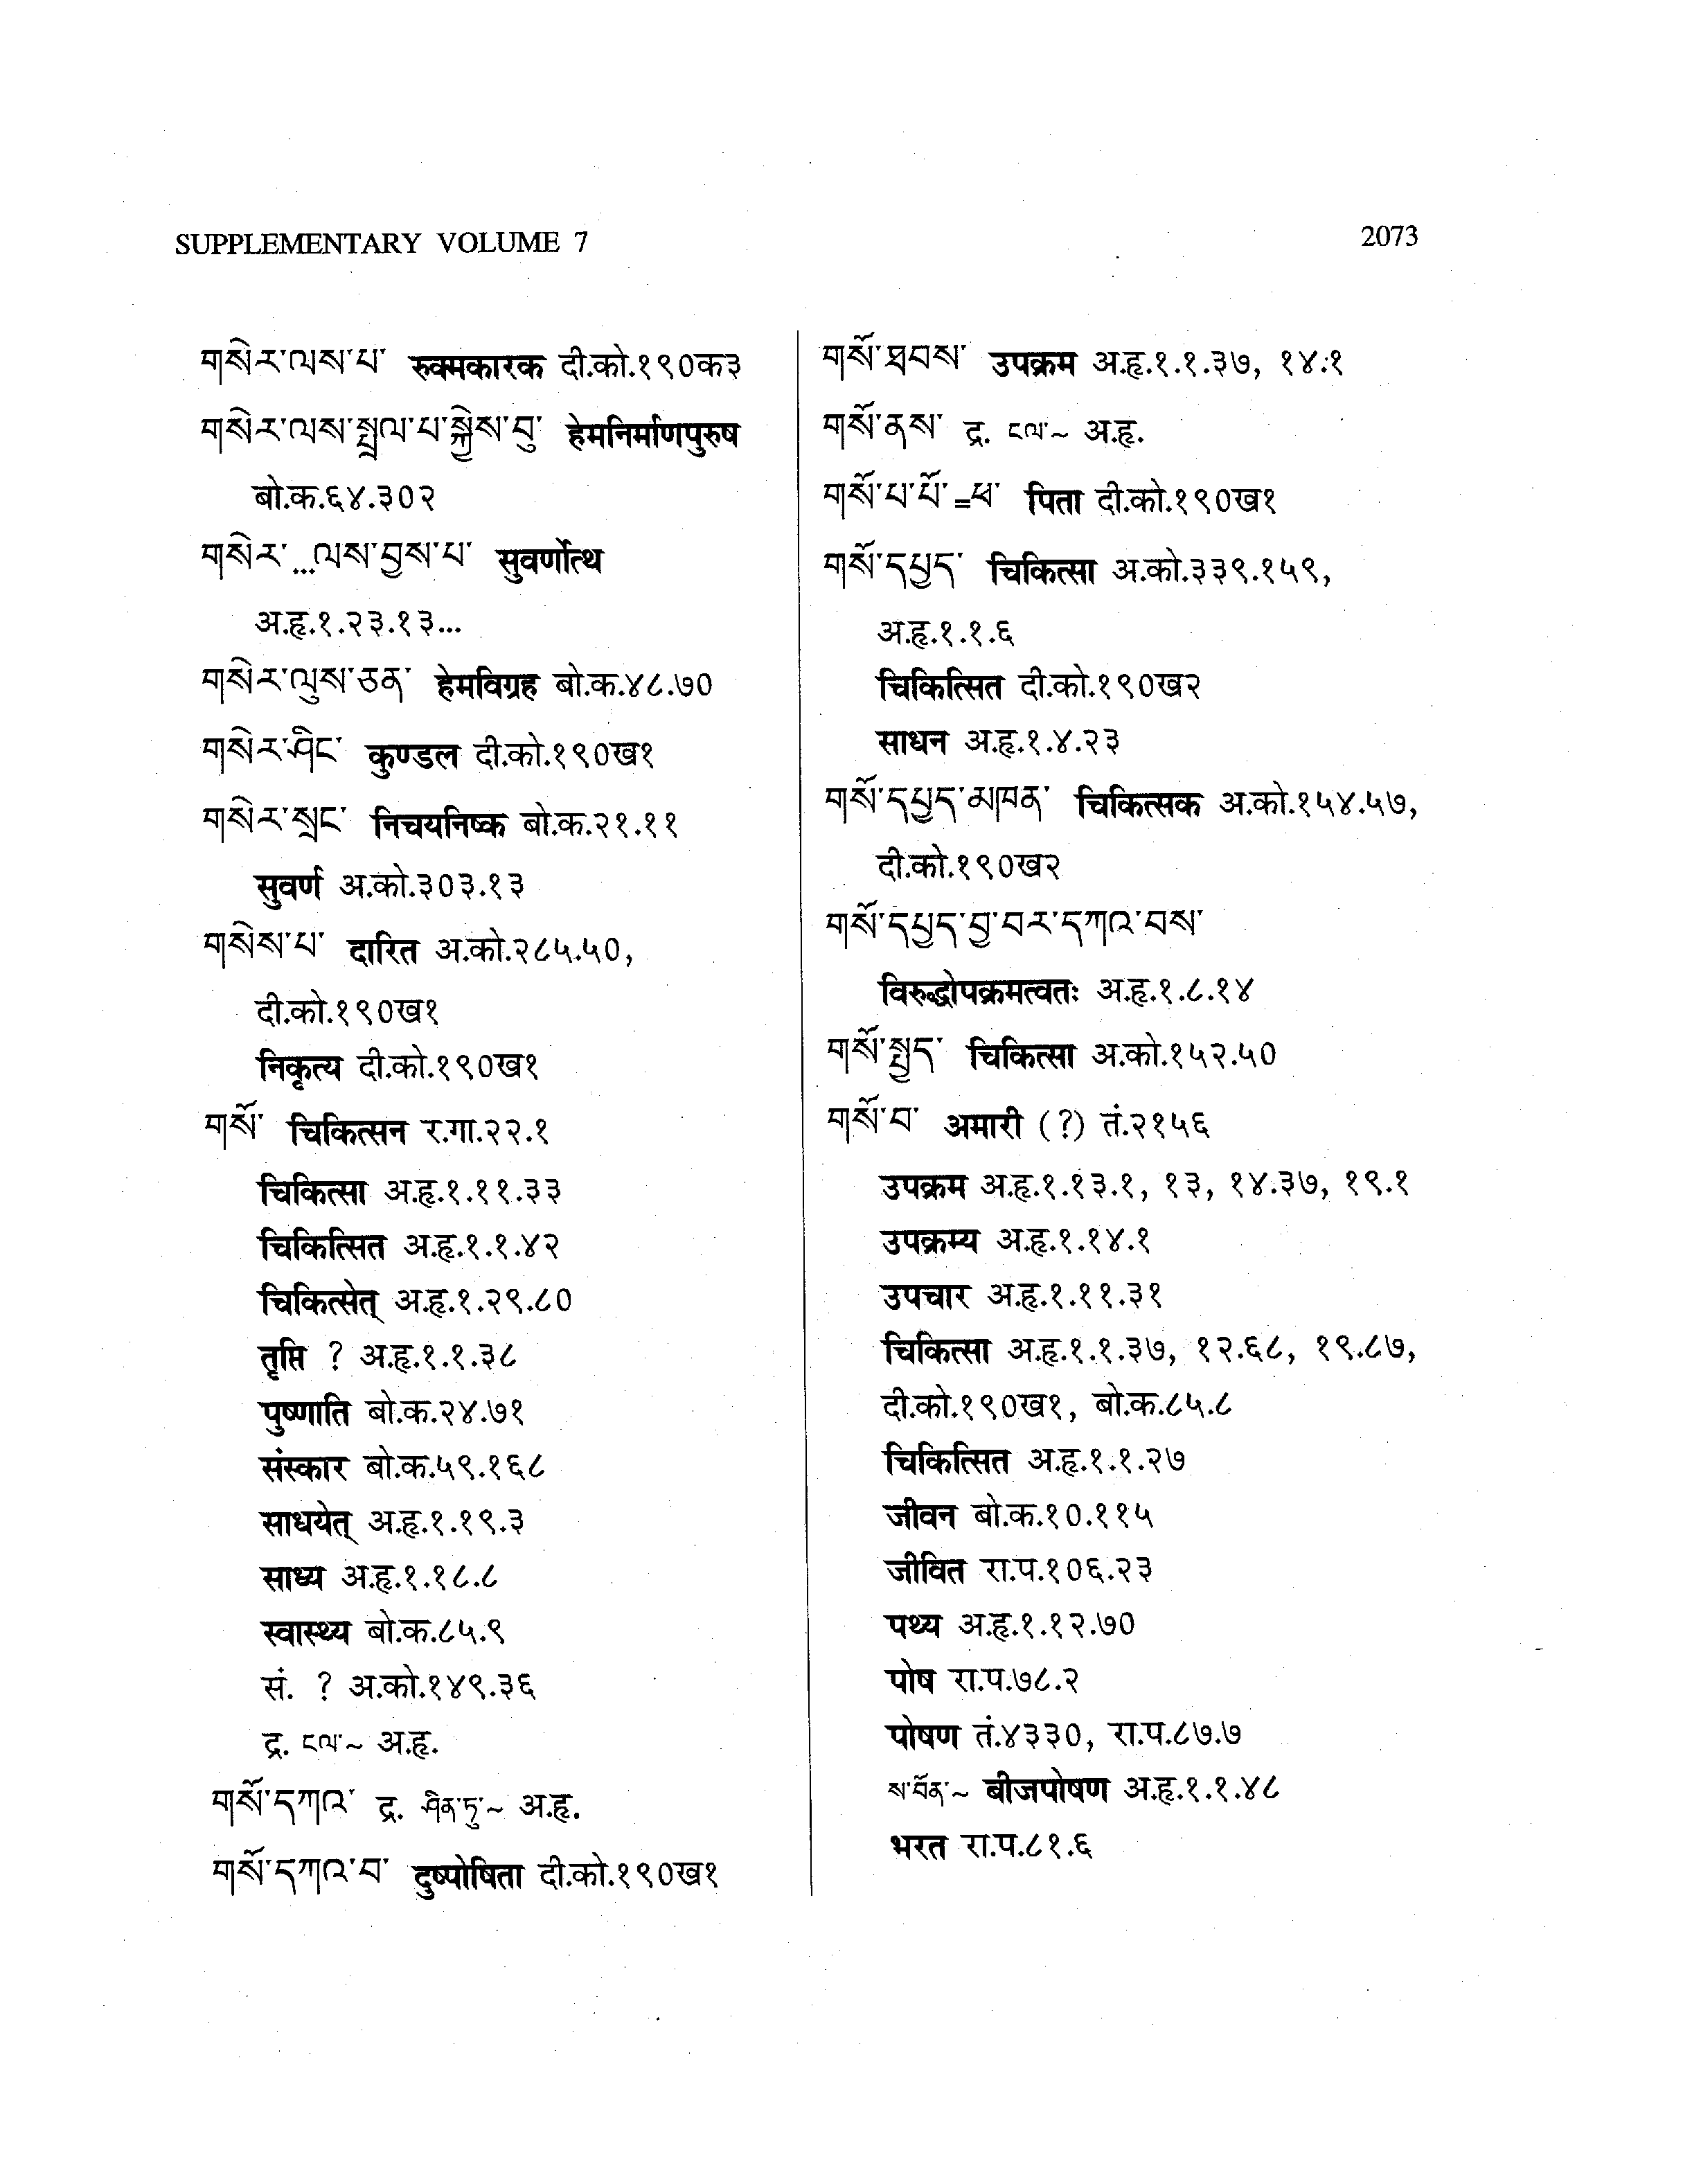 SUPPLEMENTARY VOLUME 7
2073
གསེར་ལས་པ་ रुक्मकारक दी.को.१९०क३
གསེར་ལས་སྤྲུལ་པ་སྐྱེས་བུ་ हेमनिर्माणपुरुष
बो.क.६४.३०२
གསེར་...ལས་བྱས་པ་ सुवर्णोत्थ
अ.हृ.१.२३.१३...
གསེར་ལུས་ཅན་ हेमविग्रह बो.क.४८.७०
གསེར་ཤིང་ कुण्डल दी.को.१९०ख१
གསེར་སྲང་ निचयनिष्क बो.क.२१.११
सुवर्ण अ.को.३०३.१३
གསེས་པ་ दारित अ.को.२८५.५०,
दी.को.१९०ख१
निकृत्य दी.को.१९०ख१
གསོ་ चिकित्सन र.गा.२२.१
चिकित्सा अ.हृ.१.११.३३
चिकित्सित अ.हृ.१.१.४२
चिकित्सेत् अ.हृ.१.२९.८०
तृप्ति ? अ.हृ.१.१.३८
पुष्णाति बो.क.२४.७१
संस्कार बो.क.५९.१६८
साधयेत् अ.हृ.१.१९.३
साध्य अ.हृ.१.१८.८
स्वास्थ्य बो.क.८५.९
सं. ? अ.को.१४९.३६
द्र. ངལ་~ अ.हृ.
གསོ་དཀའ་ द्र. ཤིན་ཏུ་~ अ.हृ.
གསོ་དཀའ་བ་ दुष्पोषिता दी.को.१९०ख१
གསོ་ཐབས་ उपक्रम अ.हृ.१.१.३७, १४.१
གསོ་ནས་ द्र. ངལ་~ अ.हृ.
གསོ་པ་པོ་=ཕ་ पिता दी.को.१९०ख१
གསོ་དཔྱད་ चिकित्सा अ.को.३३९.१५९,
अ.हृ.१.१.६
चिकित्सित दी.को.१९०ख२
साधन अ.हृ.१.४.२३
གསོ་དཔྱད་མཁན་ चिकित्सक अ.को.१५४.५७,
दी.को.१९०ख२
གསོ་དཔྱད་བྱ་བར་དཀའ་བས་
विरुद्धोपक्रमत्वतः अ.हृ.१.८.१४
གསོ་སྤྱད་ चिकित्सा अ.को.१५२.५०
གསོ་བ་ अमारी (?) तं.२१५६
उपक्रम अ.हृ.१.१३.१, १३, १४.३७, १९.१
उपक्रम्य अ.हृ.१.१४.१
उपचार अ.हृ.१.११.३१
चिकित्सा अ.हृ.१.१.३७, १२.६८, १९.८७,
दी.को.१९०ख१, बो.क.८५.८
चिकित्सित अ.हृ.१.१.२७
जीवन बो.क.१०.११५
जीवित रा.प.१०६.२३
पथ्य अ.हृ.१.१२.७०
पोष रा.प.७८.२
पोषण तं.४३३०, रा.प.८७.७
ས་བོན་~ बीजपोषण अ.हृ.१.१.४८
भरत रा.प.८१.६